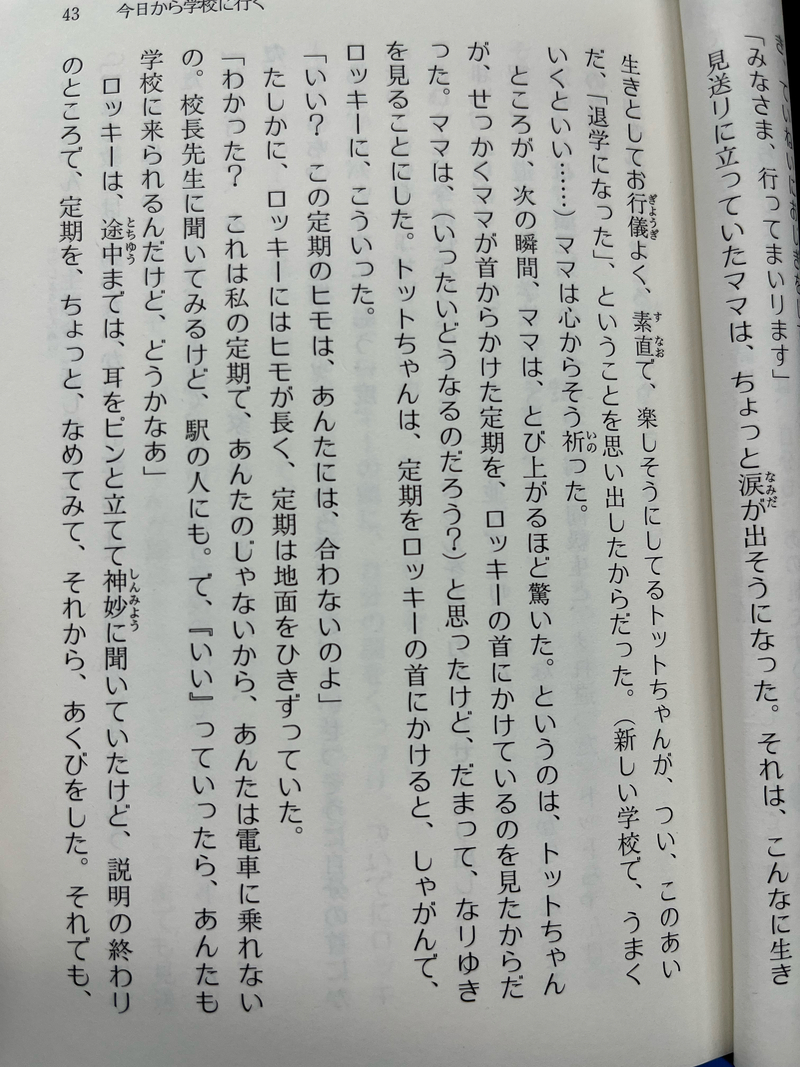 「みなさま、行ってまいります」
見送りに立っていたママは、ちょっと涙が出そうになった。それは、こんなに生き
43 今日から学校に行く
生きとしてお行儀よく、素直で、楽しそうにしてるトットちゃんが、つい、このあい
だ、「退学になった」、ということを思い出したからだった。（新しい学校で、うまく
いくといい……）ママは心からそう祈った。
ところが、次の瞬間、ママは、とび上がるほど驚いた。というのは、トットちゃん
が、せっかくママが首からかけた定期を、ロッキーの首にかけているのを見たからだ
った。ママは、（いったいどうなるのだろう？）と思ったけど、だまって、なりゆき
を見ることにした。トットちゃんは、定期をロッキーの首にかけると、しゃがんで、
ロッキーに、こういった。
「いい？　この定期のヒモは、あんたには、合わないのよ」
たしかに、ロッキーにはヒモが長く、定期は地面をひきずっていた。
「わかった？　これは私の定期で、あんたのじゃないから、あんたは電車に乗れない
の。校長先生に聞いてみるけど、駅の人にも。で、『いい』っていったら、あんたも
学校に来られるんだけど、どうかなあ」
ロッキーは、途中までは、耳をピンと立てて神妙に聞いていたけど、説明の終わり
のところで、定期を、ちょっと、なめてみて、それから、あくびをした。それでも、